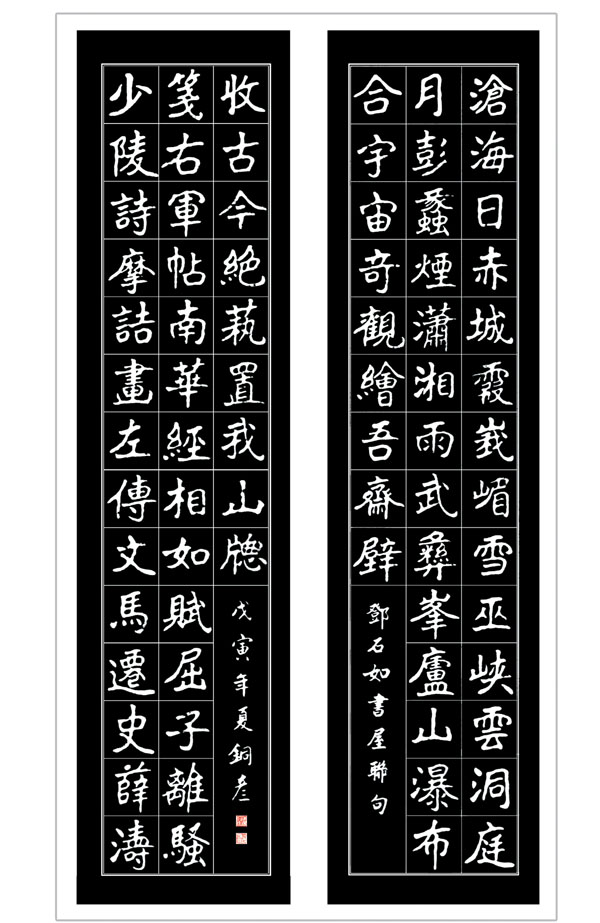 滄海日赤城霞峩嵋雪巫峽雲洞庭
月彭蠡煙瀟湘雨武彝峯廬山瀑布
合宇宙奇觀繪吾齋壁
鄧石如書屋聯句
少陵詩摩詰畫左傳文馬遷史薛濤
箋右軍帖南華經相如賦屈子離騷
收古今絕蓺置我山牕
戊寅年夏銅